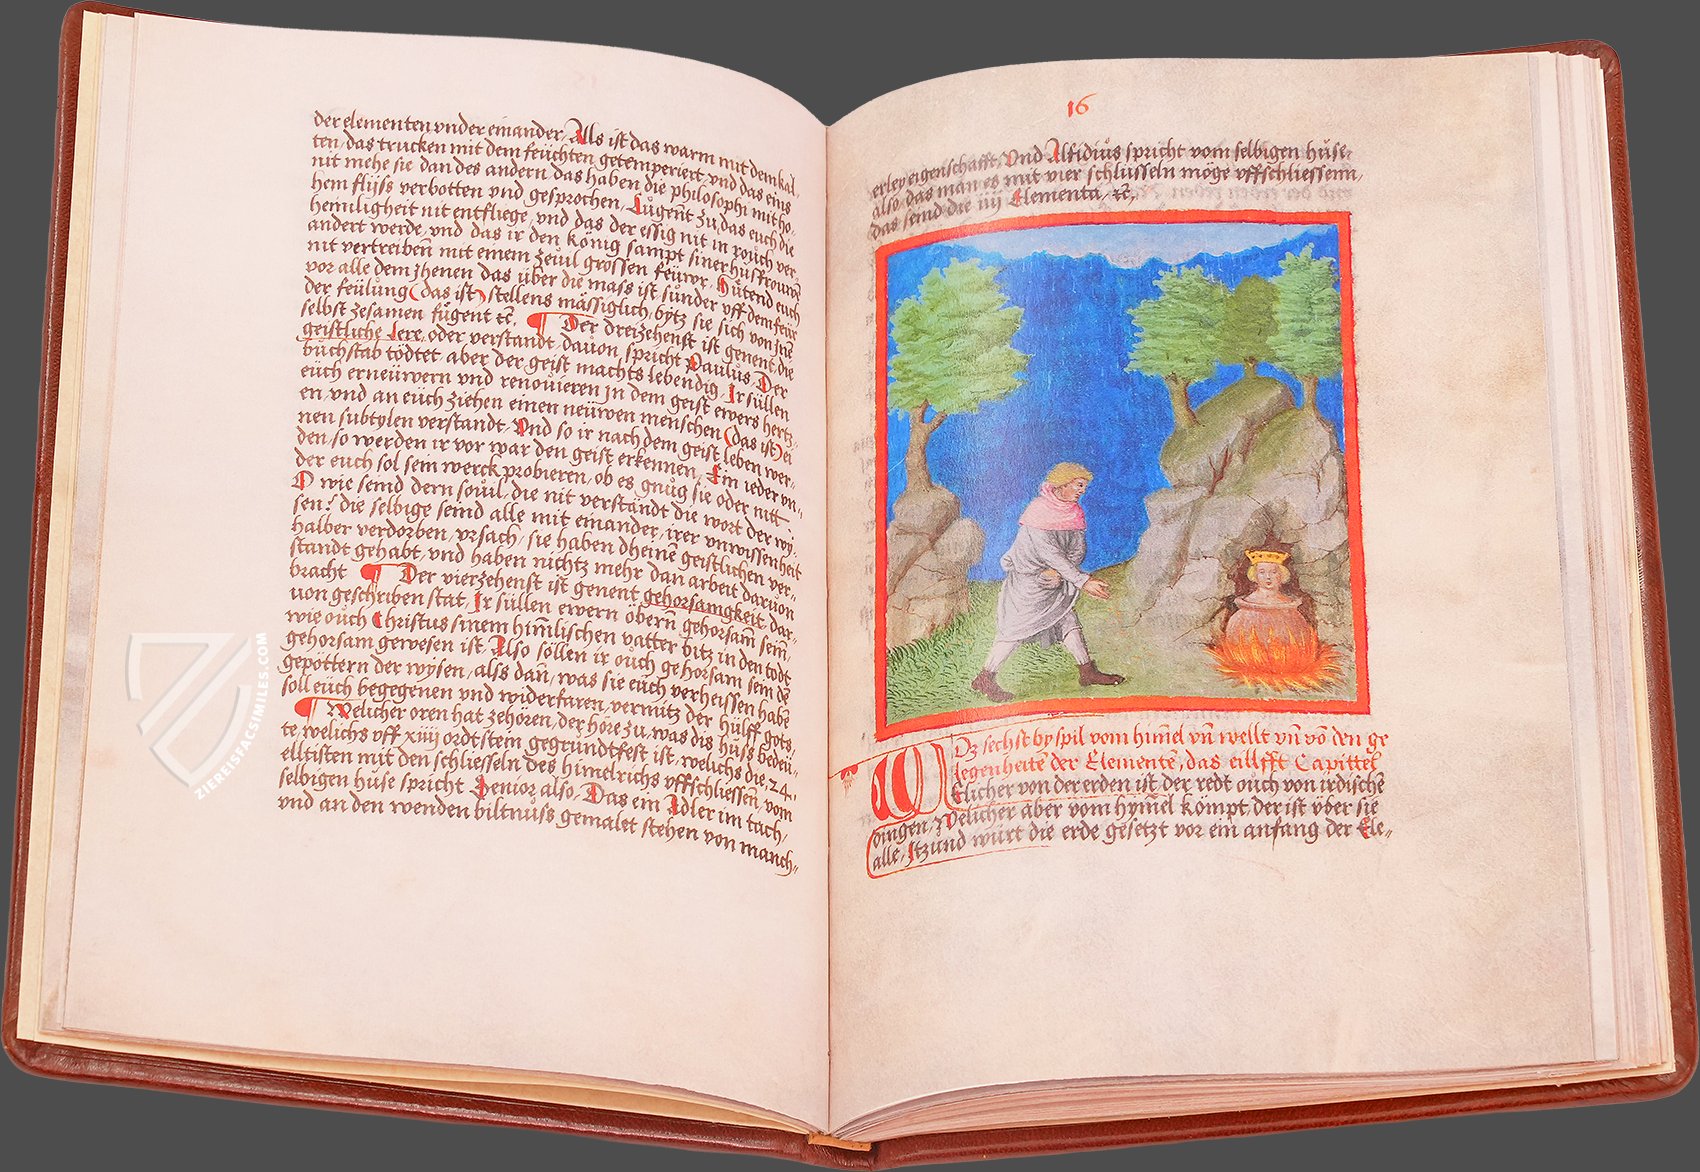 der elementen vnder einander, Alls ist das warm mit dem kal,
ten, das trucken mit dem feüchten getemperiert, vnd das eins
nit mehe sie dan des andern, das haben die philosophi mit ho,
hem flÿss verbotten vnd gesprochen, Lůgent zů, das euch die
hemiligheit nit entfliege, vnd das der essig nit in roůch ver,
andert werde, vnd das ir den König sampt siner hussfrouwẽ
nit vertreibẽn mit einem zeuil grossen feüwr, Hůtend euch
vor alle dem ihenen das über die mass ist, sůnder vff dem feür
der feülung (das ist) stellens mässiglich, bÿtz sie sich von inẽ
selbst zesamen fůgent ꝛc̃. Der dreizehenst ist genent, die
geistliche lere, oder verstandt, dauon, spricht Paulus, Der
bůchstab tödtet aber der geist machts lebendig, Ir süllen
eüch ernëuwern vnd renouieren jn dem geist ewers hertz,
en, vnd an eüch ziehen einen neüwen menschen (das ist) ei
nen subtylen verstandt, Vnd so ir nach dem geist leben wer,
den, so werden ir vor war den geist erkennen, Ein ieder vn,
der euch sol sein werck probieren, ob es gnůg sie oder nitt
O wie seind dern souil, die nit verständt die wort der wÿ,
sen? die selbige seind alle mit einander, irer vnwissenheit
halber verdorben, vrsach, sie haben dheinẽ geistlichen ver,
standt gehabt, vnd haben nichtz mehr dan arbeit daruon
bracht Der vierzehenst ist genent gehorsamgkeit, dar,
uon geschriben stat, Ir süllen ewern öberñ gehorsam̃ sein,
wie oůch Christus sinem him̃lischen vatter bitz in den todt
gehorsam gewesen ist, Also sollen ir oůch gehorsam sein dẽ
gepottern der wÿsen, alss dañ, was sie euch verheissen habẽ
soll eüch begegenen vnd widerfaren, vermitz der hülff gots,
Welicher oren hat zehören, der höre zu, was dis huss bedeü,
te, welichs vff xiiij ordtstein gegrundtfest ist, welichs die .24.,
elltisten mit den schliesseln des himelrichs vffschliessen, vom
selbigen huse spricht Senior also, Das ein Adler im tach,
vnd an den wenden biltnůss gemalet stehen von manch,,
16
erley eigenschafft, Vnd Alfidiůs spricht vom selbigen hůse,
also, das man es mit vier schlüsseln möge vffschliessenn,
das seind die iiij Elementa, ꝛc.
Dz sechst bÿspil vom him̃el vñ wellt vñ võ den ge
legenheitẽ der Elementẽ, das eillfft Capittel
WElicher von der erden ist, der redt oůch von irdischẽ
dingen, Welicher aber vom hÿmel kompt, der ist vber sie
alle, Itzund würt die erde gesetzt vor ein anfang der Ele,,
ZIEREISFACSIMILES.COM